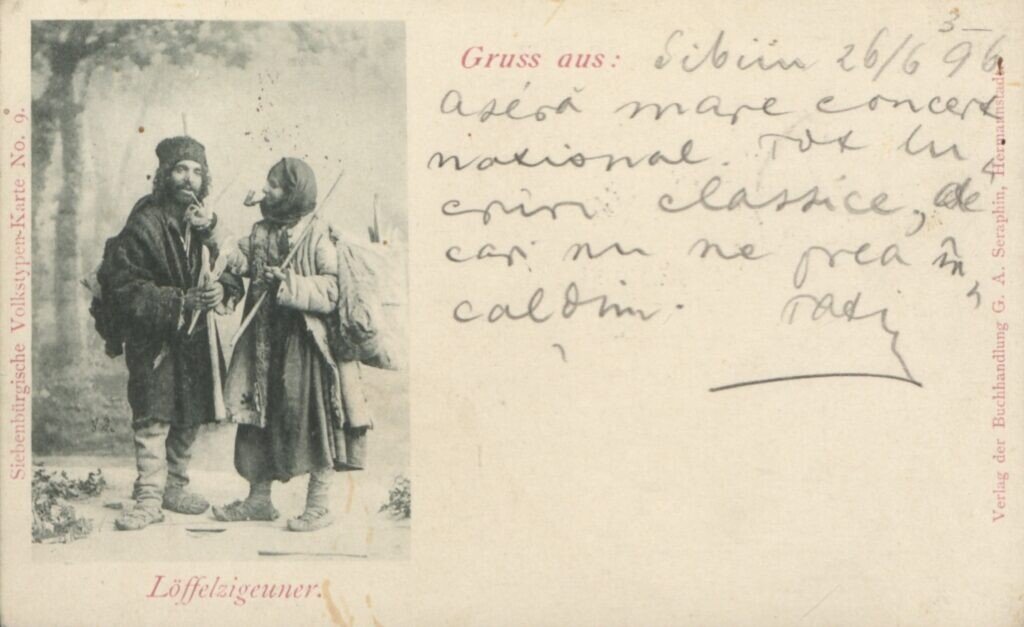 Siebenbürgische Volkstypen-Karte No. 9.
Gruss aus: Sibiiu 26/6 96
3–
aséră mare concert
național. Tot lu
cruri classice, de
cari nu ne prea în
căldim.
Löffelzigeuner.
Verlag der Buchhandlung G. A. Seraphin, Hermannstadt.